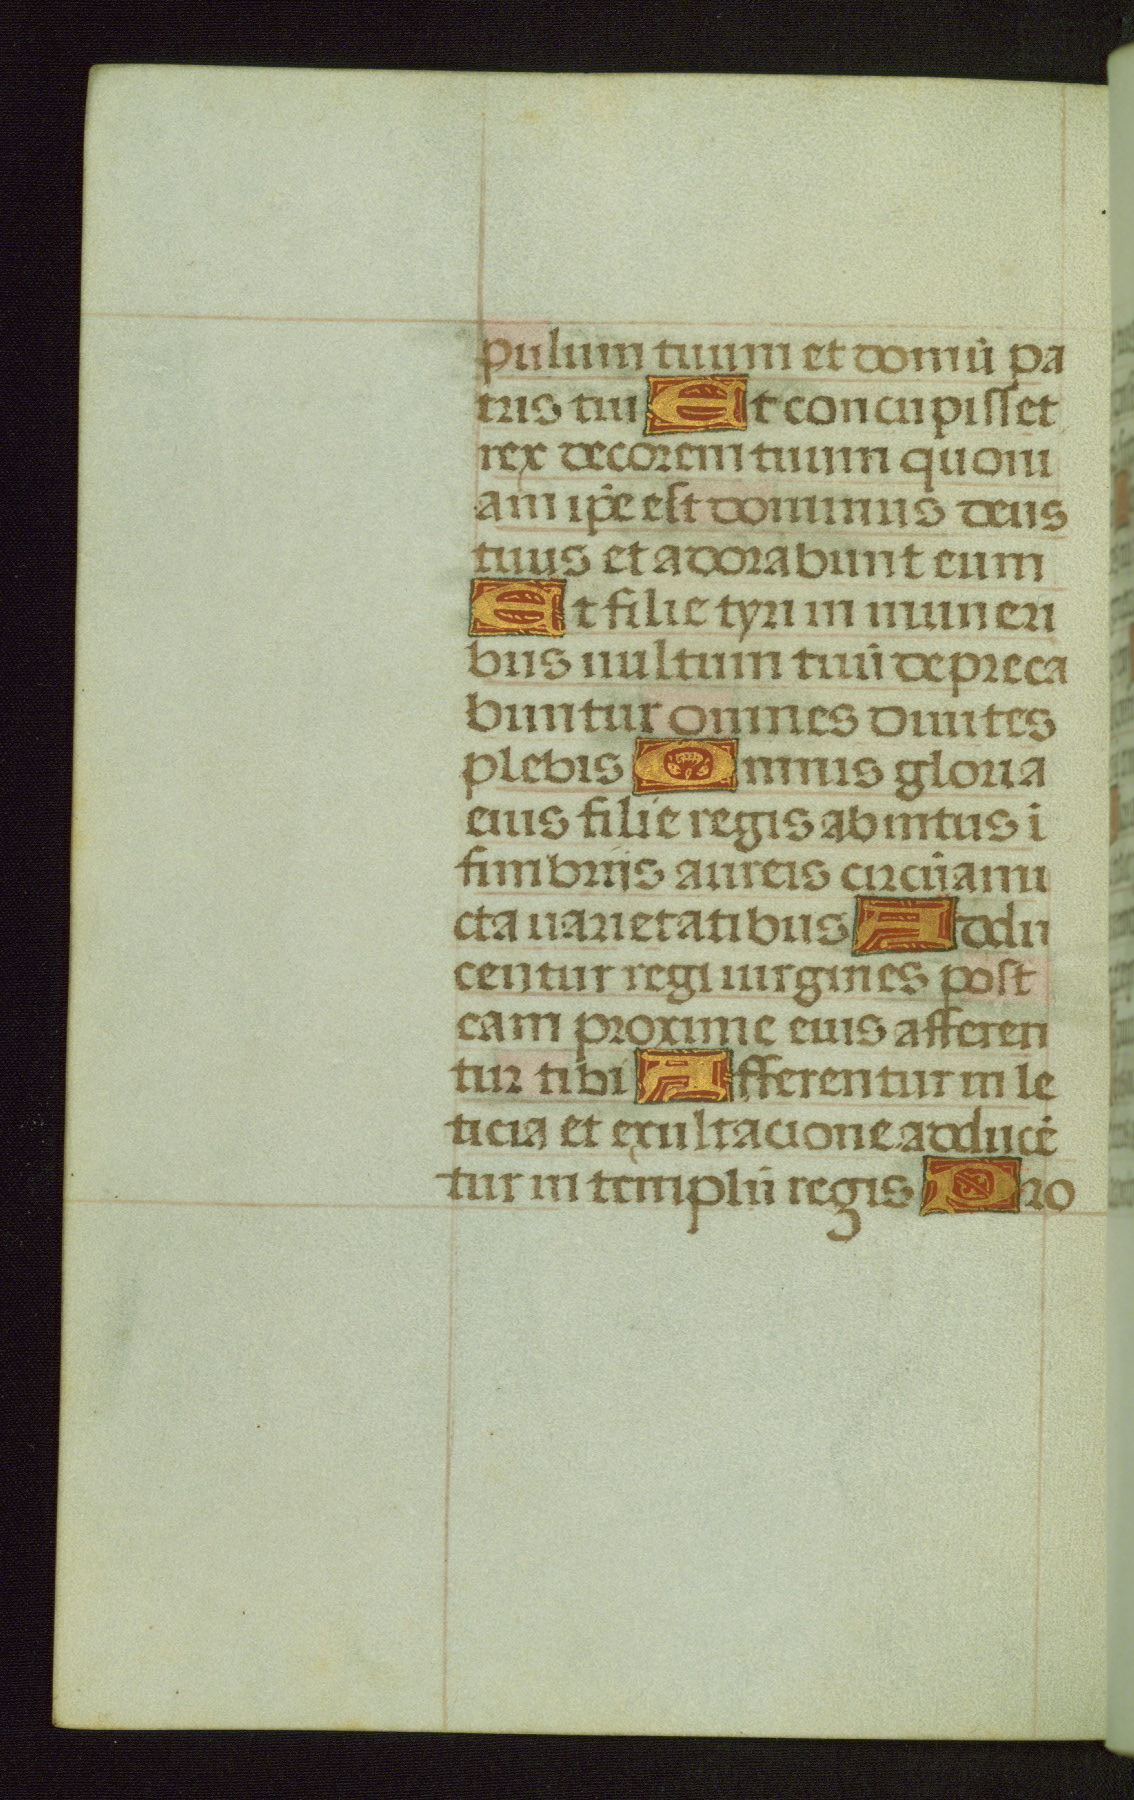 pulum tuum et domū pa
tris tui Et concupisset
rex decorem tuum quoni
am ip̄e est dominus deus
tuus et adorabunt eum
Et filie tyri in muneri
bus uultum tuū depreca
buntur omnes diuites
plebis Omnis gloria
eius filie regis abintus i
fimbriis aureis circūamı
cta uarietatibus Addu
centur regi uirgines post
eam proxime eius afferen
tur tibi Afferentur in le
ticia et exultacione adducē
tur in templū regis Pro